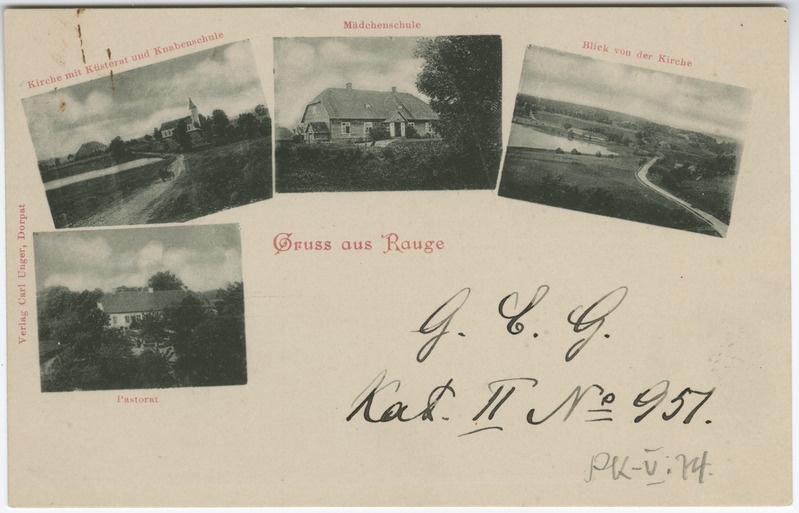 Mädchenschule
Kirche mit Küsterat und Knabenschule
Blick von der Kirche
Verlag Carl Unger, Dorpat
Gruss aus Rauge
Pastorat
G. E. G.
Kat. II № 951.
PK-V:74.